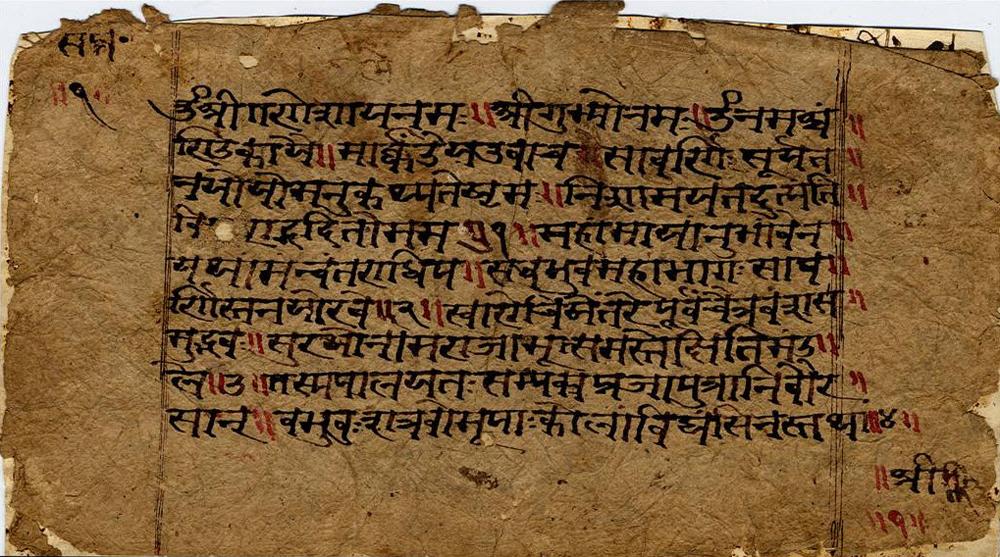 सप्त॰
॥१॥
ॐश्रीगणेशायनमः॥श्रीगुरुभ्योनमः॥ॐनमश्चं॥
रिाडकायै॥मार्कंडेयउवाच॥सावर्णिः सूर्यत॥
नयोयोमनुकथ्यतेष्टमः॥निशामयतदुत्पत्ति॥
वि राद्गदितोमम ॥१॥महामायानुभावेन॥
यथामन्वंतराधिप॥सबभुवमहाभागः साव॥
र्णिस्तनयोरवे॥२॥स्वारोचिषेंतरेपूर्वंचैत्रवंशस॥
मुद्भवः॥सुरथोनामराजाभूत्समस्तेक्षितिमंड॥
ले॥३॥तस्यपालयतः सम्यक्प्रजापुत्रानिवौर॥
सान्॥बभुवुः शत्रवोभूपाः कोलाविध्वंसिनस्तथा॥४॥
॥श्री
॥१॥